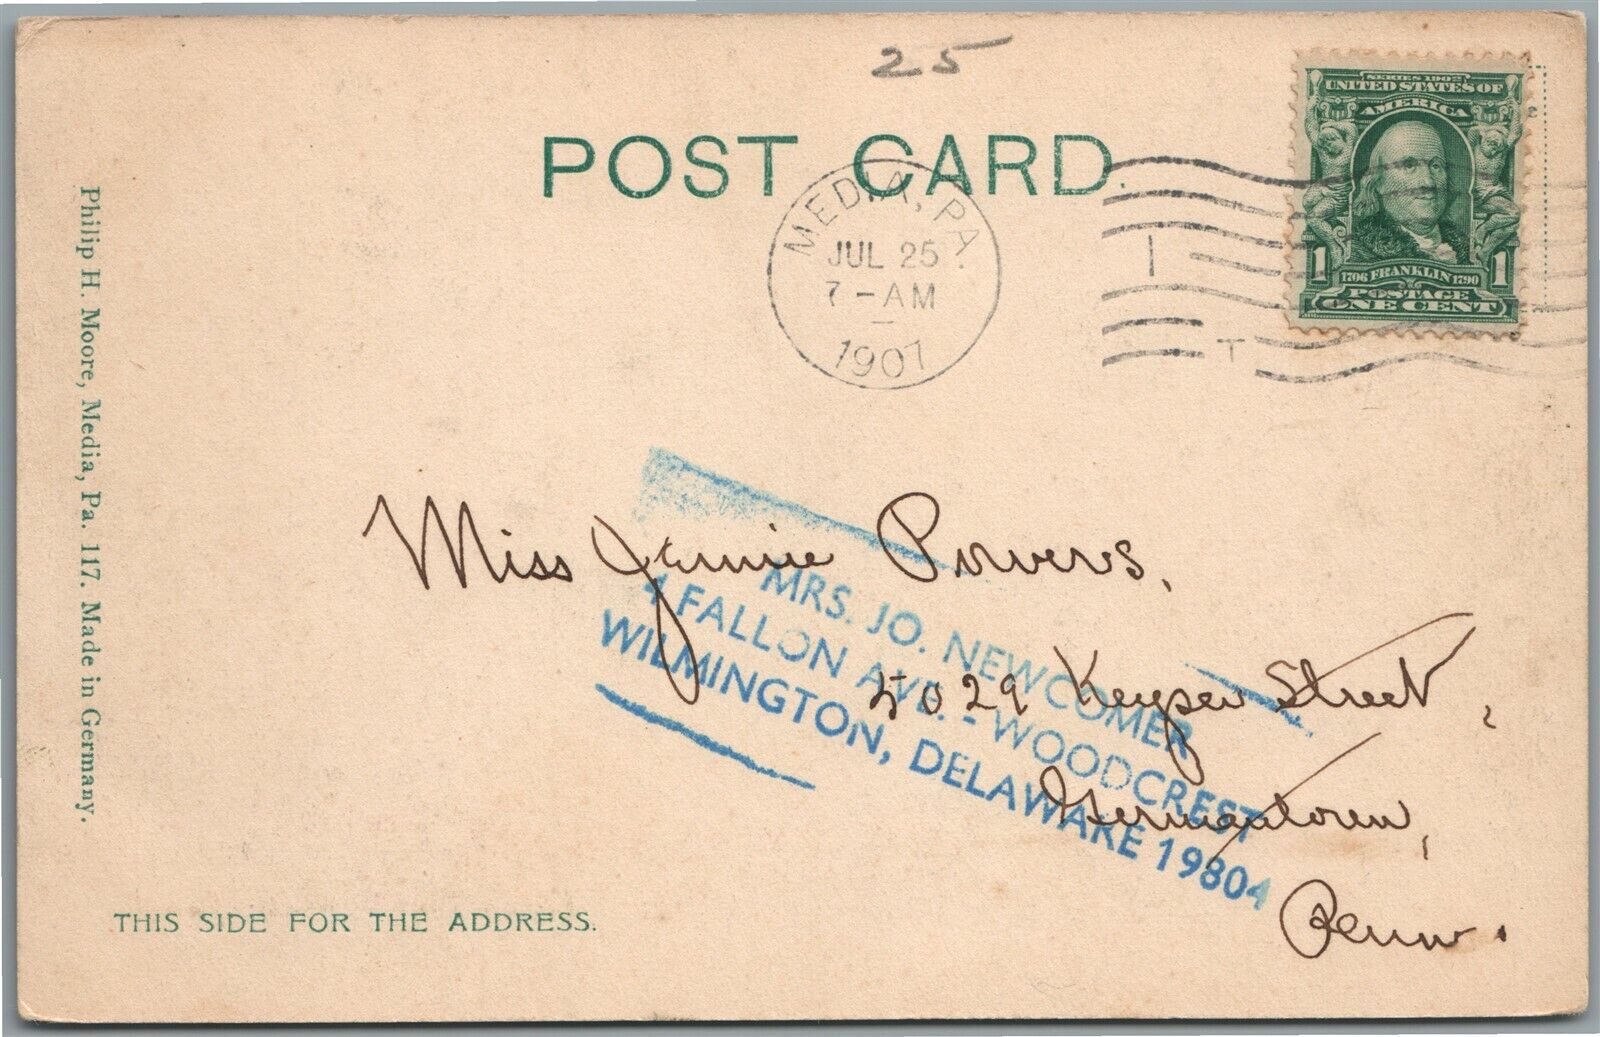 25
POST CARD.
SERIES 1902
UNITED STATES OF
AMERICA
1 1
1706 FRANKLIN 1790
POSTAGE
ONE CENT
MEDIA, PA.
JUL 25
7-AM
1907
T
Philip H. Moore, Media, Pa. 117. Made in Germany.
Miss Jennie Powers,
5029 Keyser Street,
Germantown,
Penn.
MRS. JO. NEWCOMER
4 FALLON AVE. - WOODCREST
WILMINGTON, DELAWARE 19804
THIS SIDE FOR THE ADDRESS.